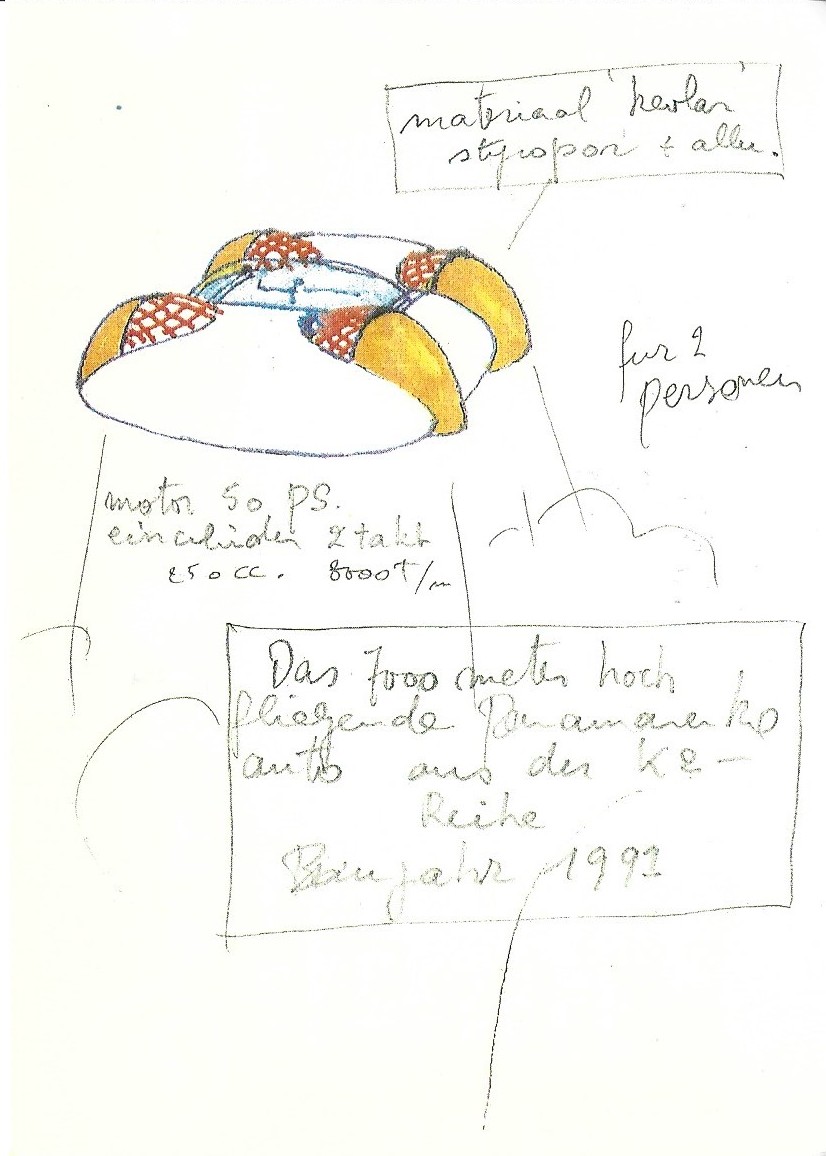 materiaal 'kevlar'
styropor + allu.
fur 2
personen
motor 50 PS.
2 takt
250 cc. 8000 T/m
Das 7000 meter hoch
fliegende Panamarenko
auto aus der K2 -
Reihe
Baujahr 1991